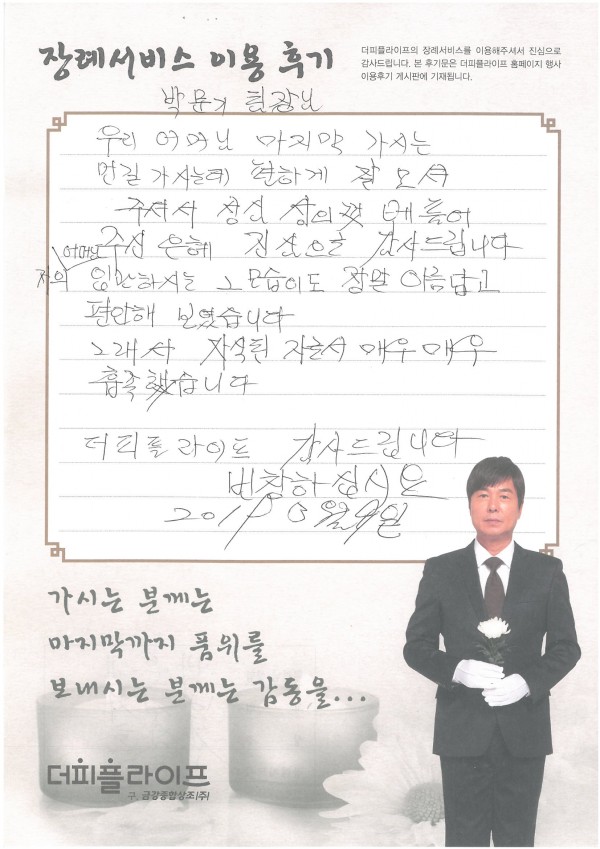 장례서비스 이용 후기
더피플라이프의 장례서비스를 이용해주셔서 진심으로
감사드립니다. 본 후기문은 더피플라이프 홈페이지 행사
이용후기 게시판에 기재됩니다.
박문기 팀장님
우리 어머님 마지막 가시는
먼길 가시는데 편하게 잘 모셔
주셔서 정신 베풀어
어머님
주신 은혜 진심으로 감사드립니다
저의 입관하시는 그 모습이도 정말 아름답고
편안해 보였습니다
그래서 자식된 자로서 매우 매우
흡족했습니다
더피플 라이프 감사드립니다
9일
가시는 분께는
마지막까지 품위를
보내시는 분께는 감동을...
더피플라이프
구. 금강종합상조(주)